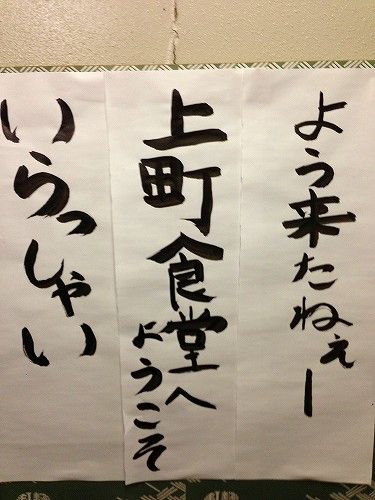 よう来たねぇー
上町食堂へ
ようこそ
いらっしゃい